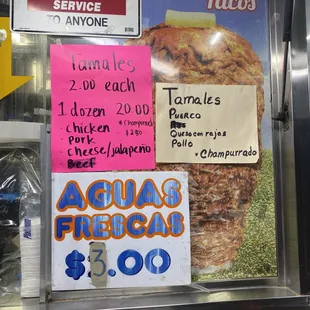 SERVICE
TO ANYONE
Tacos
Tamales
2.00 each
1 dozen 20.00
- chicken
* Champurrado
pork
- cheese/jalapeño
Tamales
Puerco
Queso con rajas
Pollo
* Champurrado
AGUAS
FRESCAS
$3.00